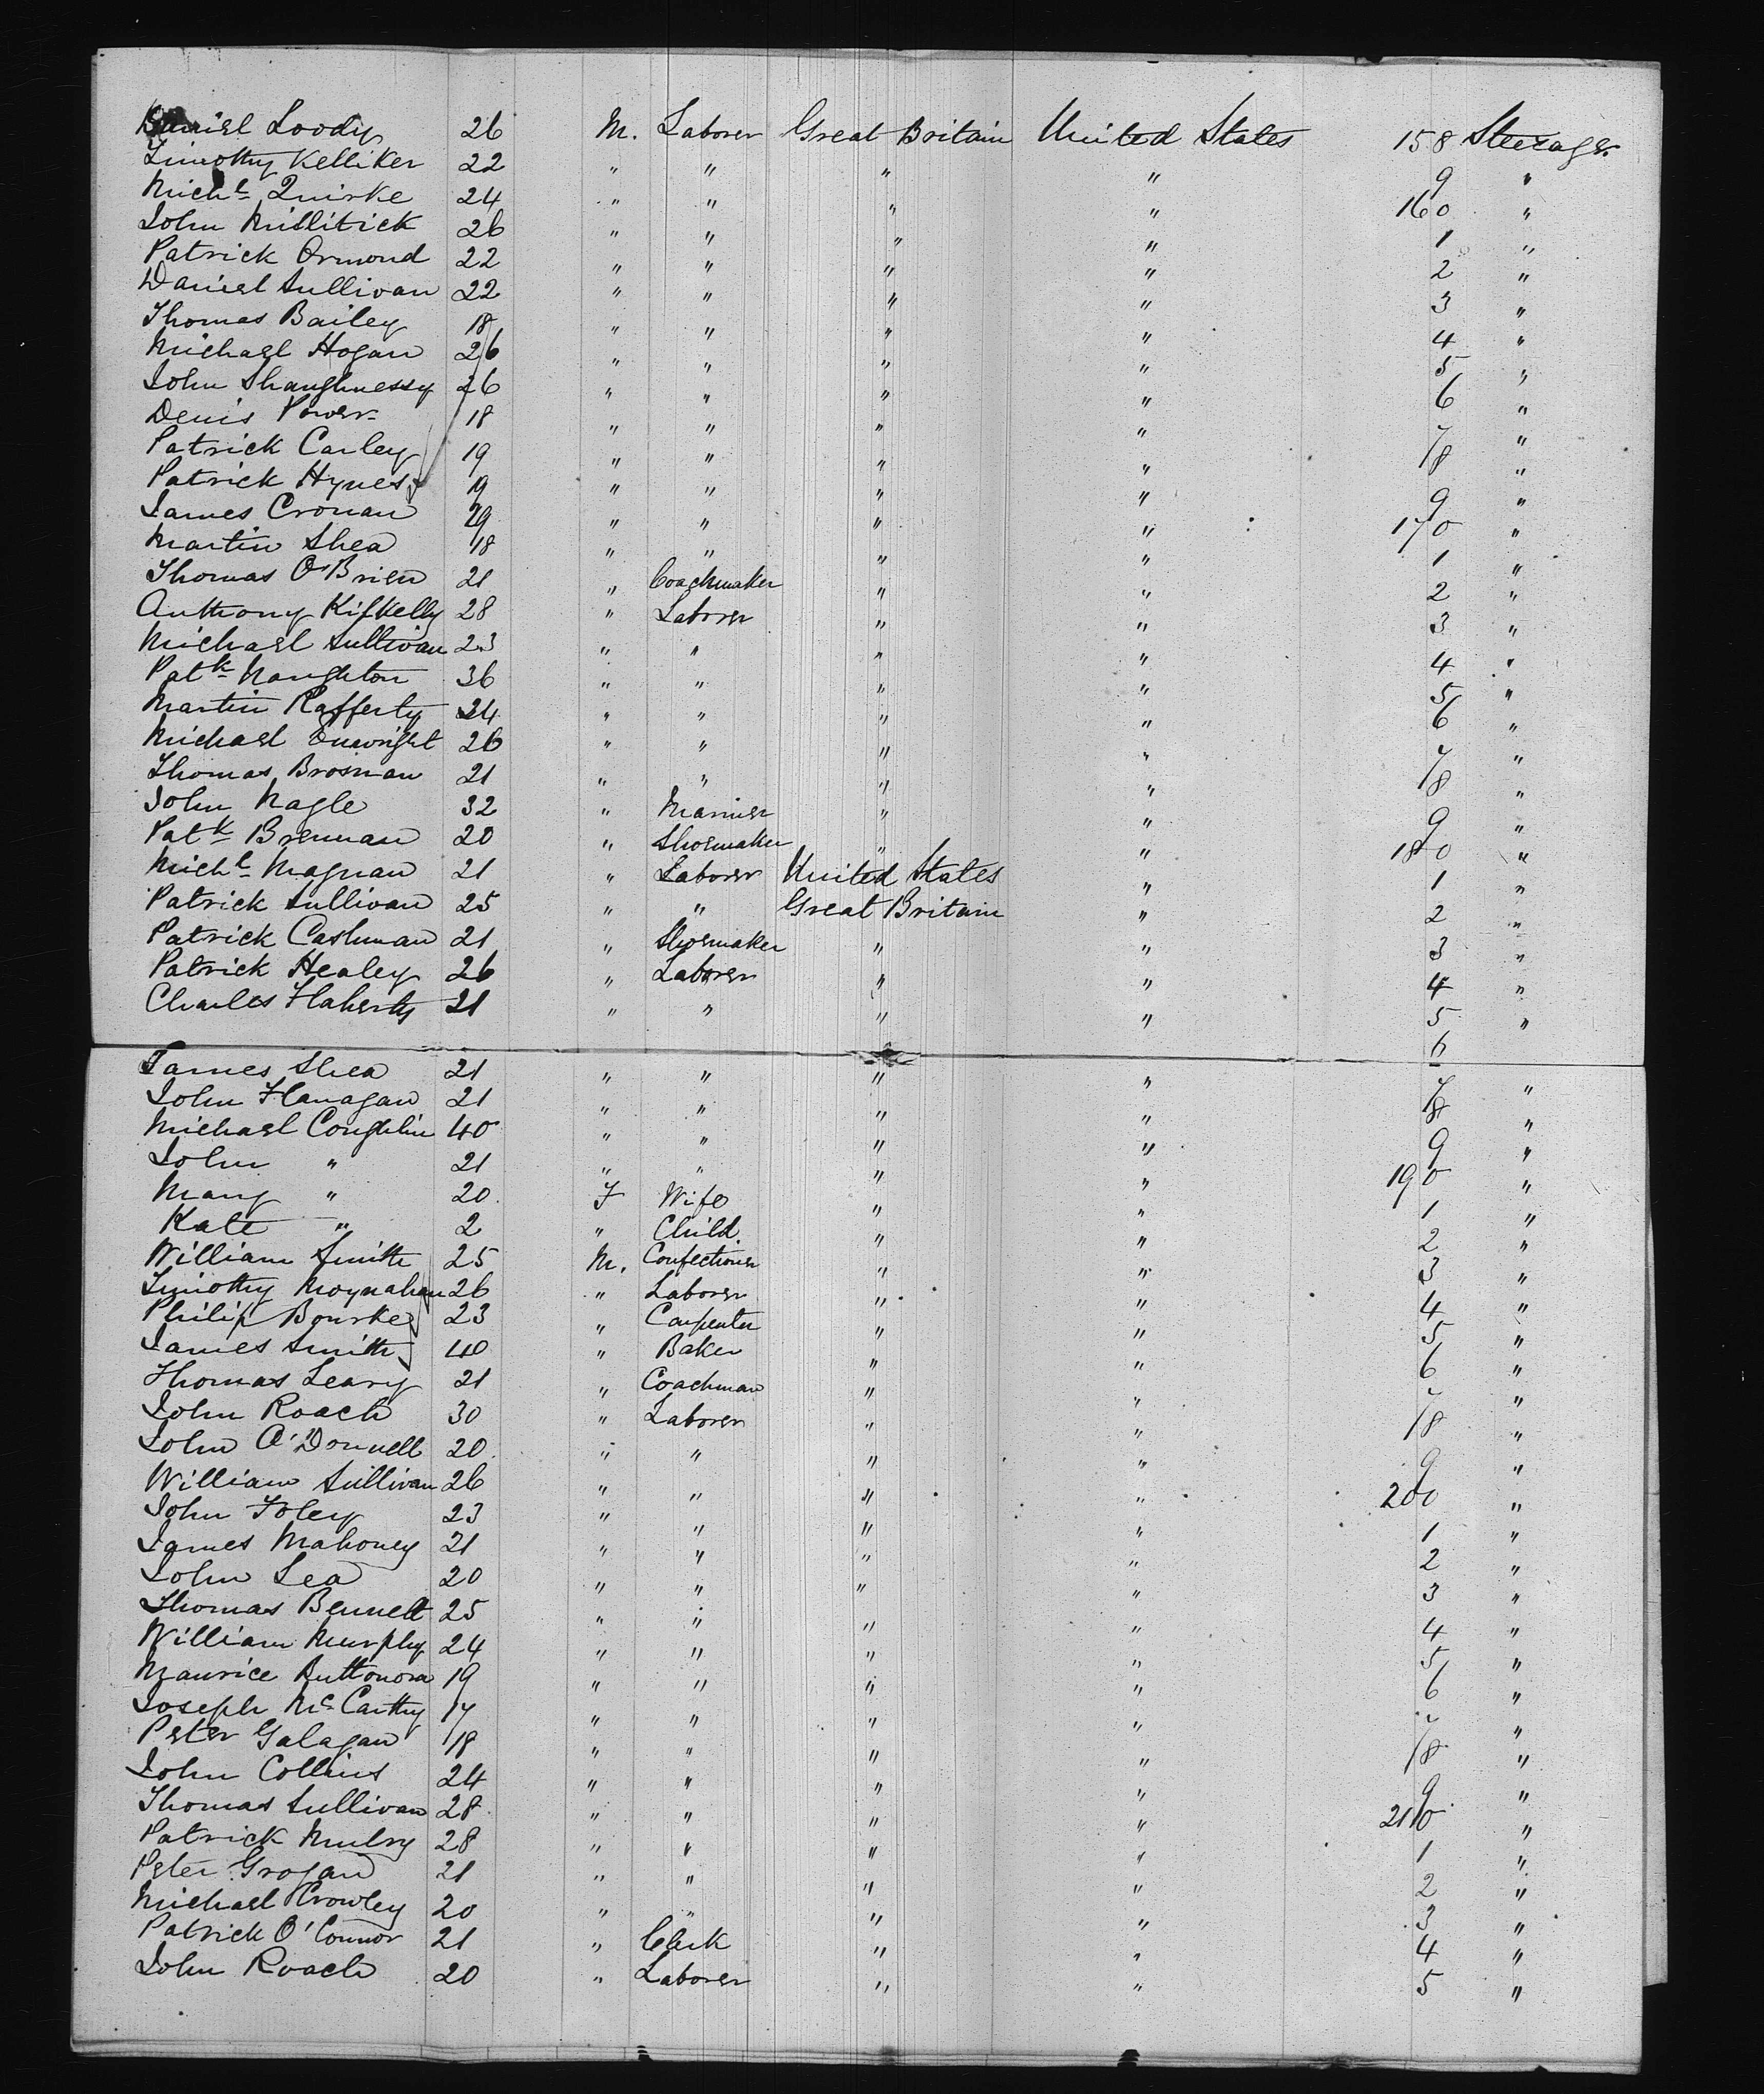 Daniel Loody 26 M. Laborer Great Britain United States 158 Steerage
Timothy Kelliker 22 " " " " 9 "
Michl Quirke 24 " " " " 160 "
John Millitick 26 " " " " 1 "
Patrick Ormond 22 " " " " 2 "
Daniel Sullivan 22 " " " " 3 "
Thomas Bailey 18 " " " " 4 "
Michael Hogan 26 " " " " 5 "
John Shaughnessy 26 " " " " 6 "
Denis Power 18 " " " " 7 "
Patrick Carley 19 " " " " 8 "
Patrick Hynes 19 " " " " 9 "
James Cronan 29 " " " " 170 "
Martin Shea 18 " " " " 1 "
Thomas O'Brien 21 " Coachmaker " " 2 "
Anthony Kilkelly 28 " Laborer " " 3 "
Michael Sullivan 23 " " " " 4 "
Patk Naughton 36 " " " " 5 "
Martin Rafferty 24 " " " " 6 "
Michael Enwright 26 " " " " 7 "
Thomas Brosnan 21 " " " " 8 "
John Nagle 32 " Marrier " " 9 "
Patk Brennan 20 " Shoemaker " " 180 "
Michl Magnan 21 " Laborer United States " 1 "
Patrick Sullivan 25 " " Great Britain " 2 "
Patrick Cashman 21 " Shoemaker " " 3 "
Patrick Healey 26 " Laborer " " 4 "
Charles Flaherty 21 " " " " 5 "
6
James Shea 21 " " " " 7 "
John Flanagan 21 " " " " 8 "
Michael Coughlin 40 " " " " 9 "
John " 21 " " " " 190 "
Mary " 20 F Wife " " 1 "
Kate " 2 " Child. " " 2 "
William Smith 25 M. Confectioner " " 3 "
Timothy Moynahan 26 " Laborer " " 4 "
Philip Bourke 23 " Carpenter " " 5 "
James Smith 40 " Baker " " 6 "
Thomas Leary 21 " Coachman " " 7 "
John Roach 30 " Laborer " " 8 "
John O'Donnell 20 " " " " 9 "
William Sullivan 26 " " " " 200 "
John Foley 23 " " " " 1 "
James Mahoney 21 " " " " 2 "
John Lea 20 " " " " 3 "
Thomas Bennett 25 " " " " 4 "
William Murphy 24 " " " " 5 "
Maurice Buttonora 19 " " " " 6 "
Joseph McCarthy 17 " " " " 7 "
Peter Galagan 18 " " " " 8 "
John Collins 24 " " " " 9 "
Thomas Sullivan 28 " " " " 210 "
Patrick Mulry 28 " " " " 1 "
Peter Grogan 21 " " " " 2 "
Michael Crowley 20 " " " " 3 "
Patrick O'Connor 21 " Clerk " " 4 "
John Roach 20 " Laborer " " 5 "